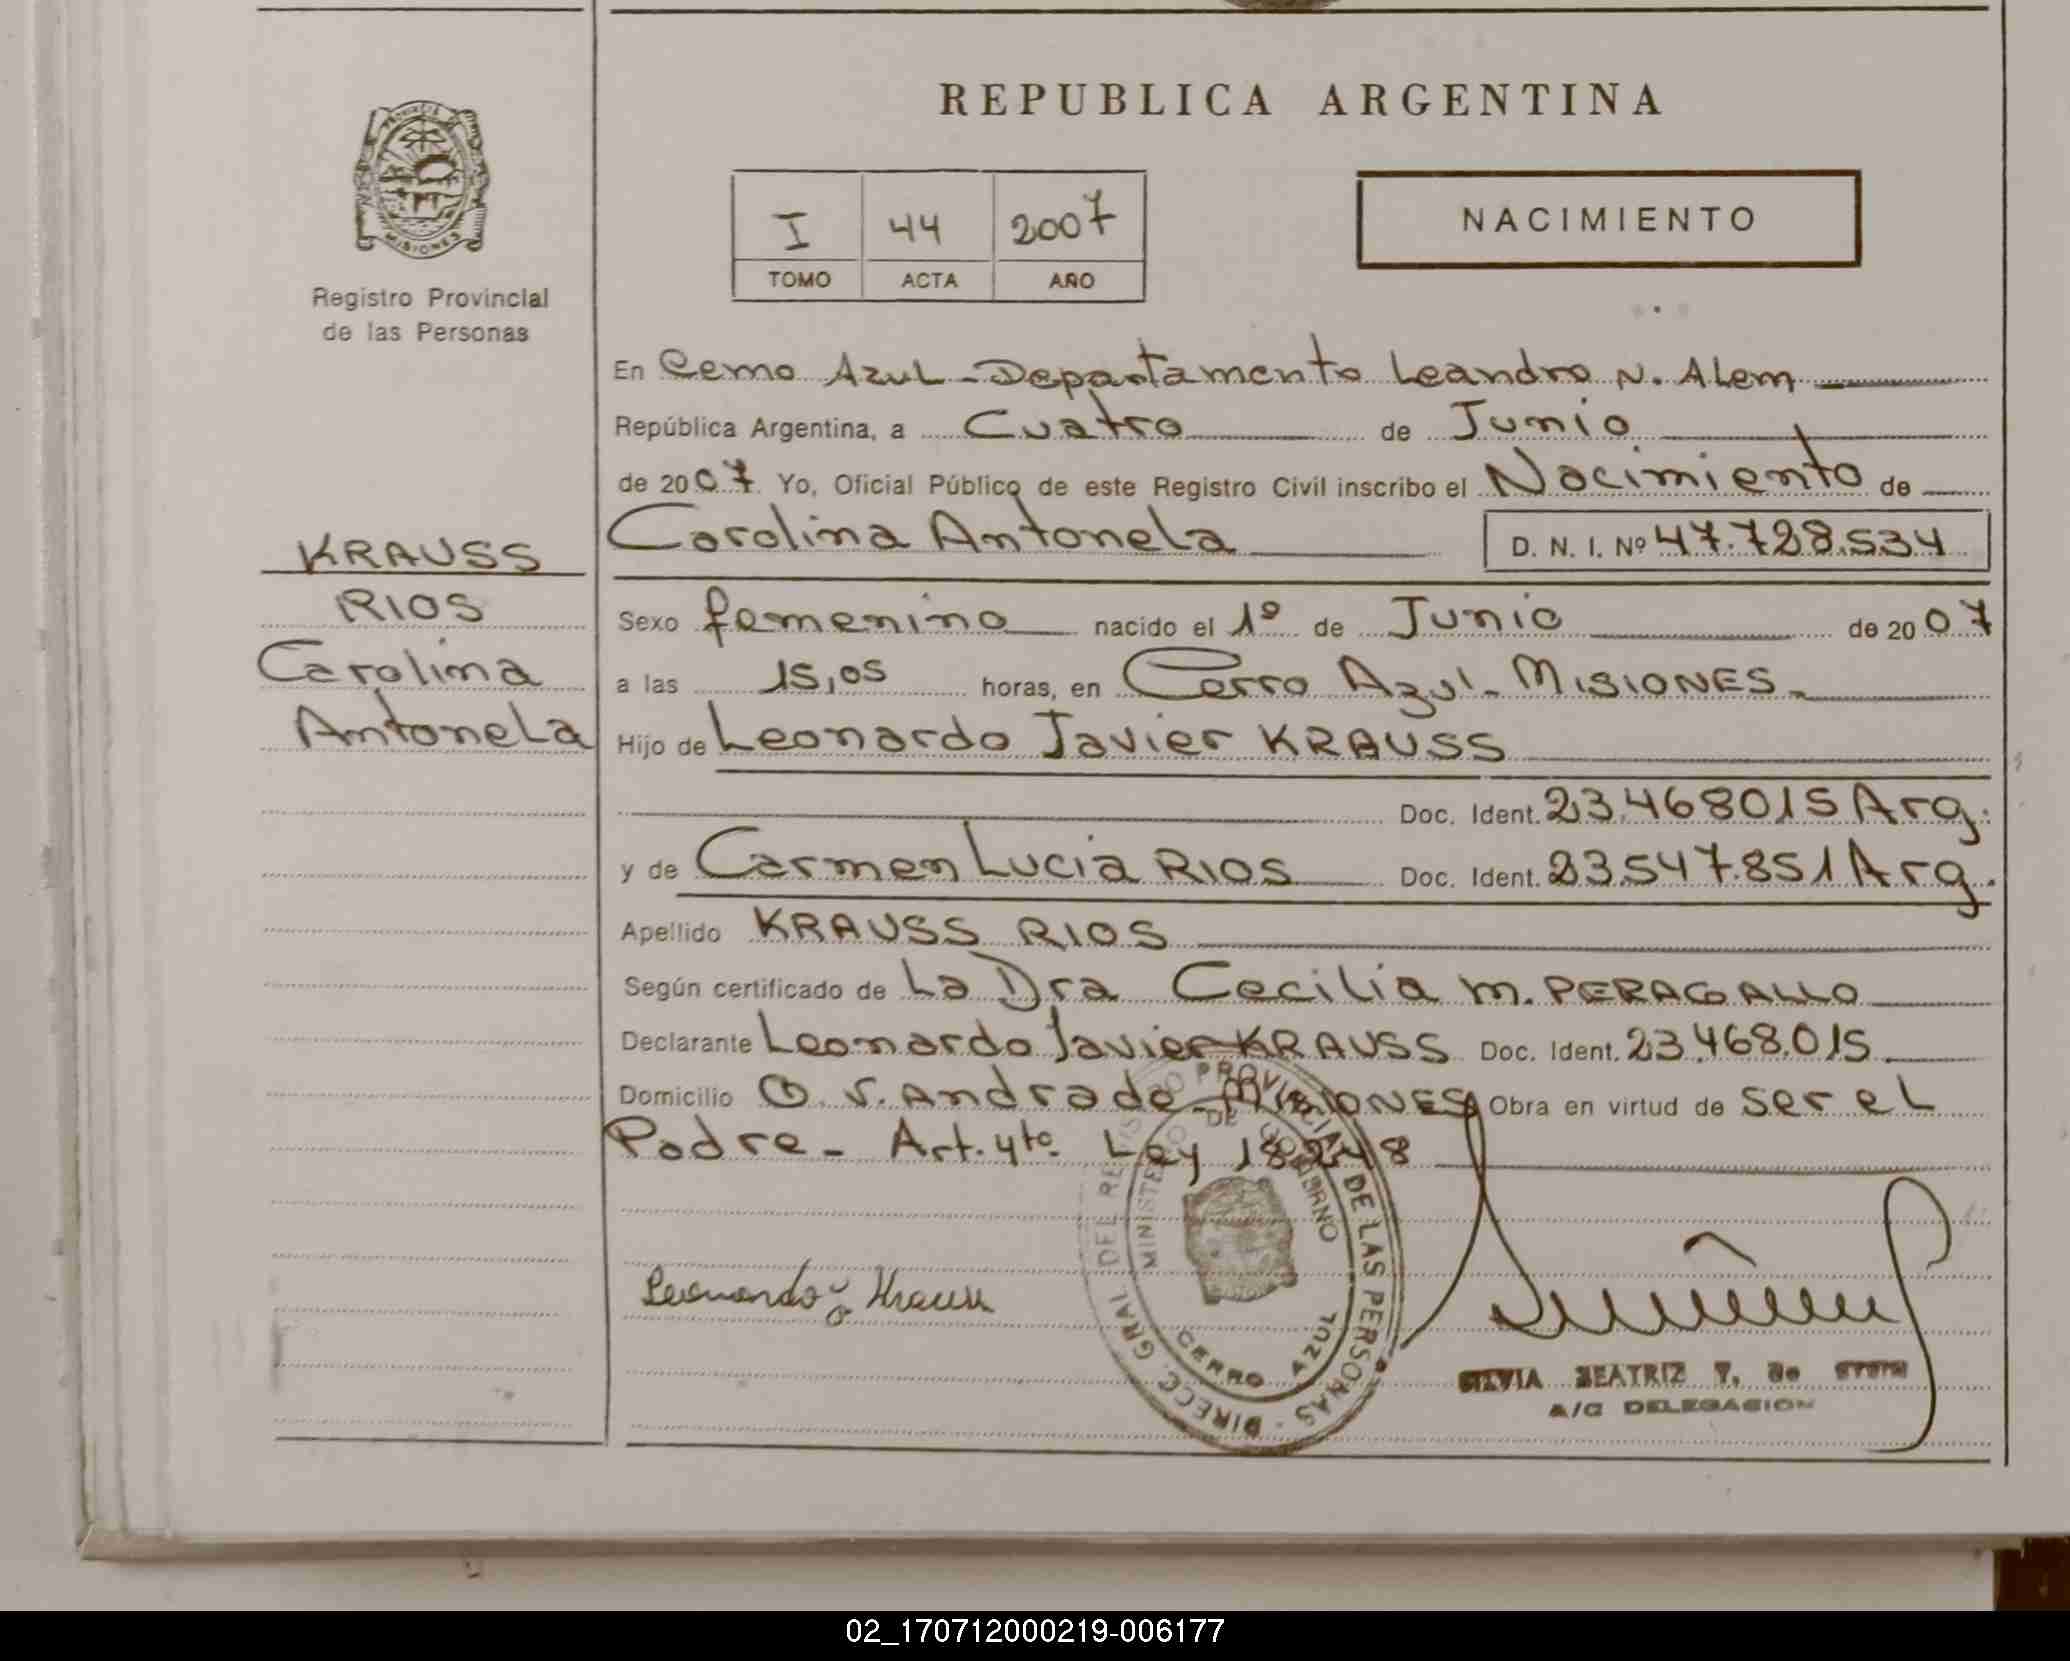 REPUBLICA ARGENTINA
PROVINCIA DE
MISIONES
Registro Provincial
de las Personas
I 44 2007
TOMO ACTA AÑO
NACIMIENTO
En Cerro Azul - Departamento Leandro N. Alem
República Argentina, a Cuatro de Junio
de 2007 Yo, Oficial Público de este Registro Civil inscribo el Nacimiento de
Carolina Antonela D. N. I. Nº 47.728.534
KRAUSS
RIOS
Carolina
Antonela
Sexo femenino nacido el 1º de Junio de 2007
a las 15,05 horas, en Cerro Azul - MISIONES -
Hijo de Leonardo Javier KRAUSS
Doc. Ident. 23.468015 Arg.
y de Carmen Lucia RIOS Doc. Ident. 23.547.851 Arg.
Apellido KRAUSS RIOS
Según certificado de La Dra Cecilia M. PERAGALLO
Declarante Leonardo Javier KRAUSS Doc. Ident. 23.468.015
Domicilio O. V. Andrade - MISIONES Obra en virtud de ser el
Padre - Art. 4to. Ley 18248
Leonardo J. Krauss
DIRECC. GRAL DEL REGISTRO PROVINCIAL DE LAS PERSONAS
MINISTERIO DE GOBIERNO
CERRO AZUL
SILVIA BEATRIZ Y. de
A/C DELEGACION
02_170712000219-006177